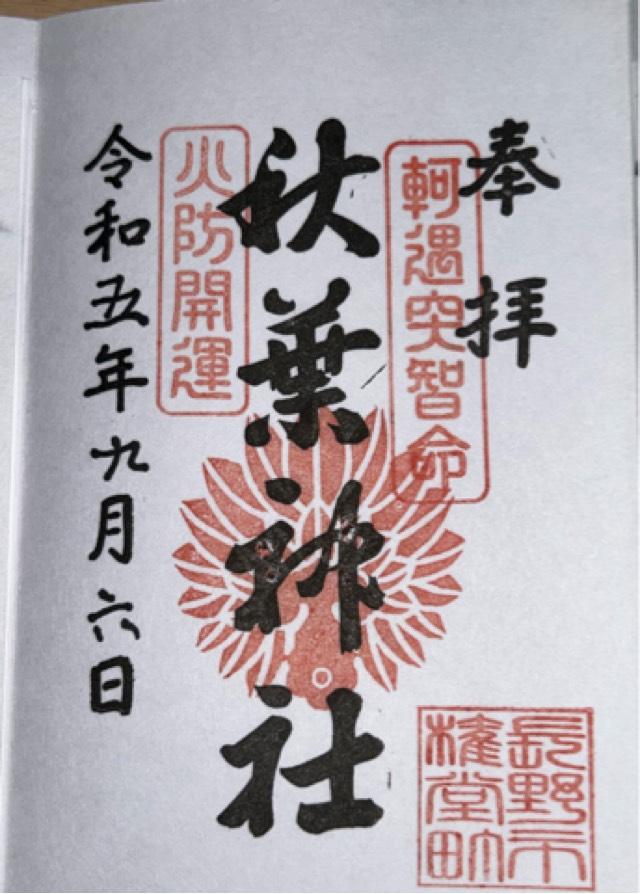 奉拝
軻遇突智命
秋葉神社
火防開運
令和五年九月六日
長野市
権堂町